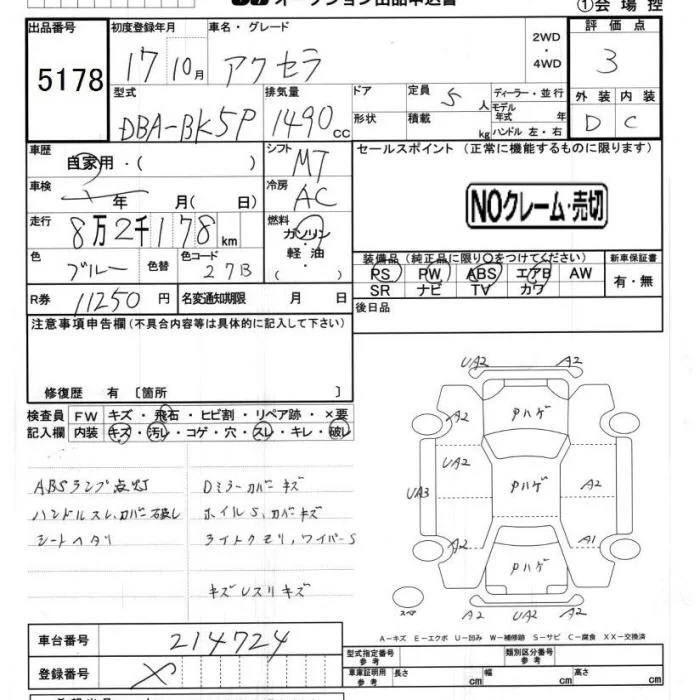 ①会場控
出品番号 初度登録年月 車名・グレード 2WD・4WD 評価点
5178 17 10月 アクセラ 3
型式 排気量 ドア 定員 5人 ディーラー・並行 外装 内装
DBA-BK5P 1490cc 形状 積載 kg モデル年式 年 ハンドル 左・右 D C
車歴 自家用・( ) シフト MT セールスポイント (正常に機能するものに限ります)
車検 年 月( 日) 冷房 AC NOクレーム・売切
走行 8万2千178km 燃料 ガソリン・軽油・( )
色 ブルー 色替 色コード 27B
装備品 (純正品に限り○をつけてください) 新車保証書
PS PW ABS エアB AW 有・無
SR ナビ TV カワ
R券 11250円 名変通知期限 月 日 後日品
注意事項申告欄(不具合内容等は具体的に記入して下さい)
修復歴 有 〔箇所 〕
検査員記入欄 FW キズ・飛石・ヒビ割・リペア跡・×要
内装 キズ・汚レ・コゲ・穴・スレ・キレ・破レ
ABSランプ点灯 Dミラーカバーキズ
ハンドルスレ,カバー破レ ホイルS,カバキズ
シートヘタリ ライトクモリ,ワイパーS
キズUスリキズ
UA2 A2
A2 Pハゲ A2
UA2
UA3 Pハゲ A2
A2 A1
Pハゲ
スペア A2 UA2 A2
A−キズ E−エクボ U−凹み W−補修跡 S−サビ C−腐食 XX−交換済
車台番号 214724
登録番号 型式指定番号 参考 類別区分番号 参考
車庫証明用 参考 長さ cm 幅 cm 高さ cm